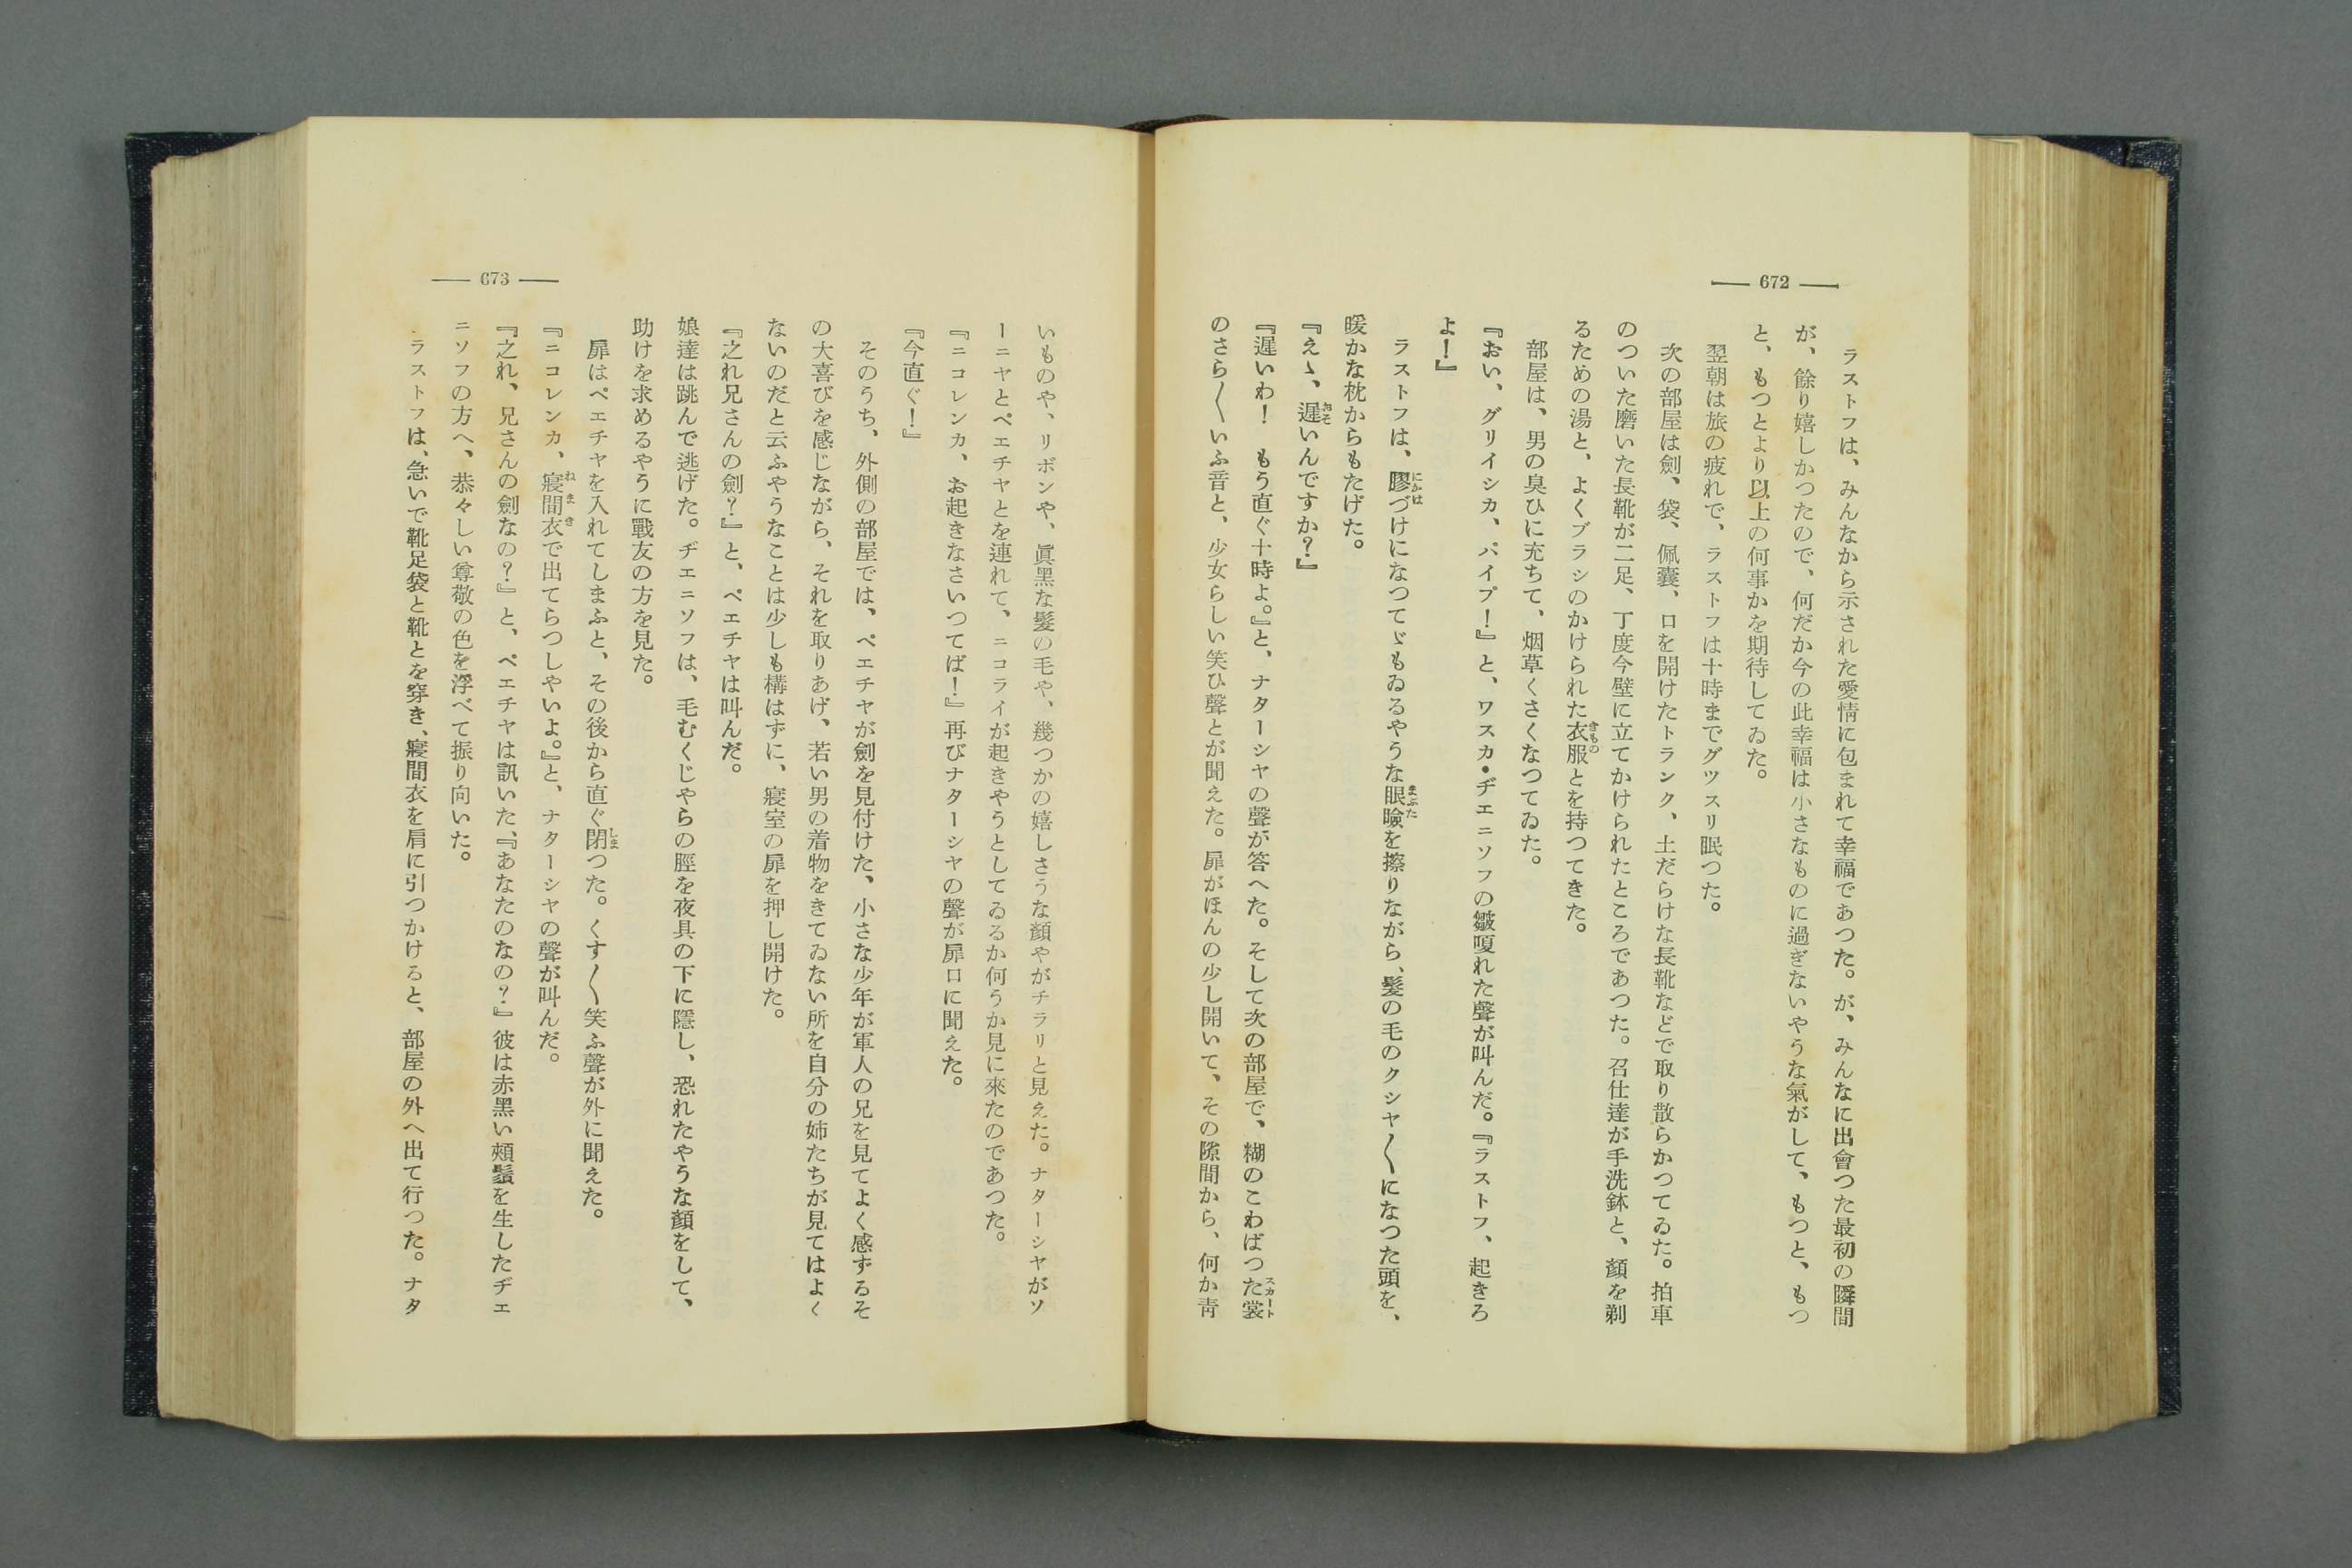 672
ラストフは、みんなから示された愛情に包まれて幸福であつた。が、みんなに出會つた最初の瞬間
が、餘り嬉しかつたので、何だか今の此幸福は小さなものに過ぎないやうな氣がして、もつと、もつ
と、もつとより以上の何事かを期待してゐた。
翌朝は旅の疲れで、ラストフは十時までグツスリ眠つた。
次の部屋は劍、袋、佩嚢、口を開けたトランク、土だらけな長靴などで取り散らかつてゐた。拍車
のついた磨いた長靴が二足、丁度今壁に立てかけられたところであつた。召仕達が手洗鉢と、顏を剃
るための湯と、よくブラシのかけられた衣服とを持つてきた。
部屋は、男の臭ひに充ちて、烟草くさくなつてゐた。
『おい、グリイシカ、パイプ！』と、ワスカ・ヂエニソフの皺嗄れた聲が叫んだ。『ラストフ、起きろ
よ！』
ラストフは、膠づけになつてゞもゐるやうな眼瞼を擦りながら、髪の毛のクシヤ〱になつた頭を、
暖かな枕からもたげた。
『えゝ、遲いんですか？』
『遲いわ！　もう直ぐ十時よ。』と、ナターシヤの聲が答へた。そして次の部屋で、糊のこわばつた裳
のさら〱いふ音と、少女らしい笑ひ聲とが聞えた。扉がほんの少し開いて、その隙間から、何か靑
673
いものや、リボンや、眞黑な髪の毛や、幾つかの嬉しさうな顏やがチラリと見えた。ナターシヤがソ
ーニヤとペエチヤとを連れて、ニコライが起きやうとしてゐるか何うか見に來たのであつた。
『ニコレンカ、お起きなさいつてば！』再びナターシヤの聲が扉口に聞えた。
『今直ぐ！』
そのうち、外側の部屋では、ペエチヤが劍を見付けた、小さな少年が軍人の兄を見てよく感ずるそ
の大喜びを感じながら、それを取りあげ、若い男の着物をきてゐない所を自分の姉たちが見てはよく
ないのだと云ふやうなことは少しも構はずに、寢室の扉を押し開けた。
『之れ兄さんの劍？』と、ペエチヤは叫んだ。
娘達は跳んで逃げた。ヂエニソフは、毛むくじやらの脛を夜具の下に隱し、恐れたやうな顏をして、
助けを求めるやうに戰友の方を見た。
扉はペエチヤを入れてしまふと、その後から直ぐ閉つた。くす〱笑ふ聲が外に聞えた。
『ニコレンカ、寢間衣で出てらつしやいよ。』と、ナターシヤの聲が叫んだ。
『之れ、兄さんの劍なの？』と、ペエチヤは訊いた、『あなたのなの？』彼は赤黑い頰鬚を生したヂエ
ニソフの方へ、恭々しい尊敬の色を浮べて振り向いた。
ラストフは、急いで靴足袋と靴とを穿き、寢間衣を肩に引つかけると、部屋の外へ出て行つた。ナタ